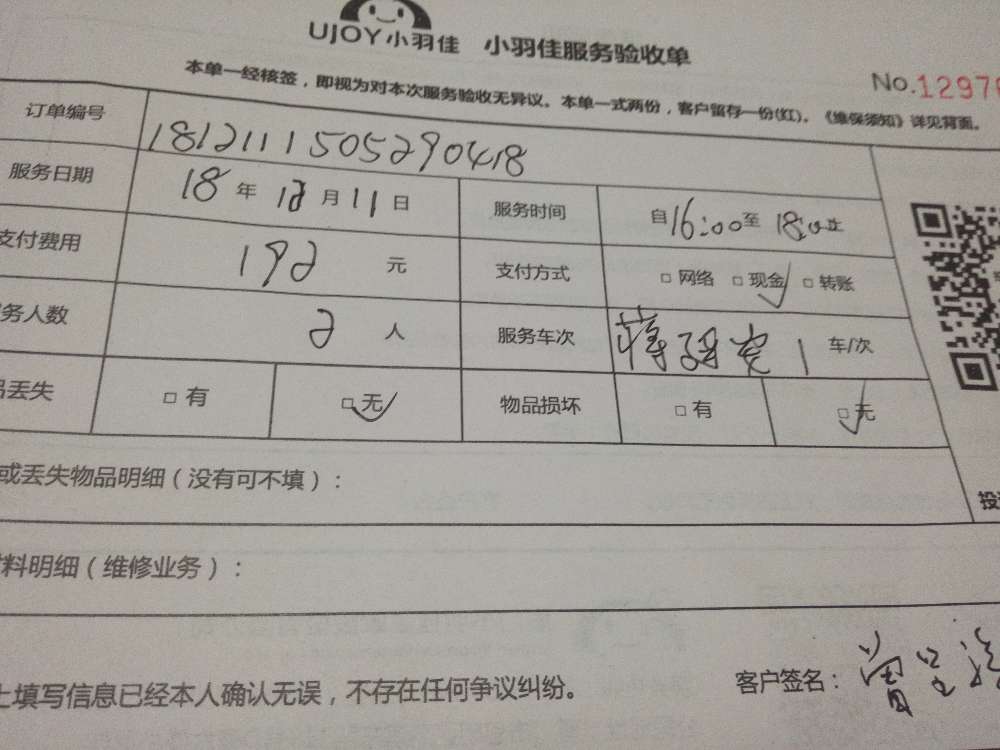 UJOY小羽佳 小羽佳服务验收单
No.1297
本单一经核签，即视为对本次服务验收无异议。本单一式两份，客户留存一份(红)。《维保须知》详见背面。
订单编号 1812111505290418
服务日期 18 年 12 月 11 日 服务时间 自 16:00 至 18:00 止
支付费用 192 元 支付方式 □ 网络 □ 现金 ✓ □ 转账
务人数 2 人 服务车次 1 车/次
品丢失 □ 有 □ 无 ✓ 物品损坏 □ 有 □ 无 ✓
或丢失物品明细（没有可不填）：
料明细（维修业务）：
上填写信息已经本人确认无误，不存在任何争议纠纷。 客户签名：